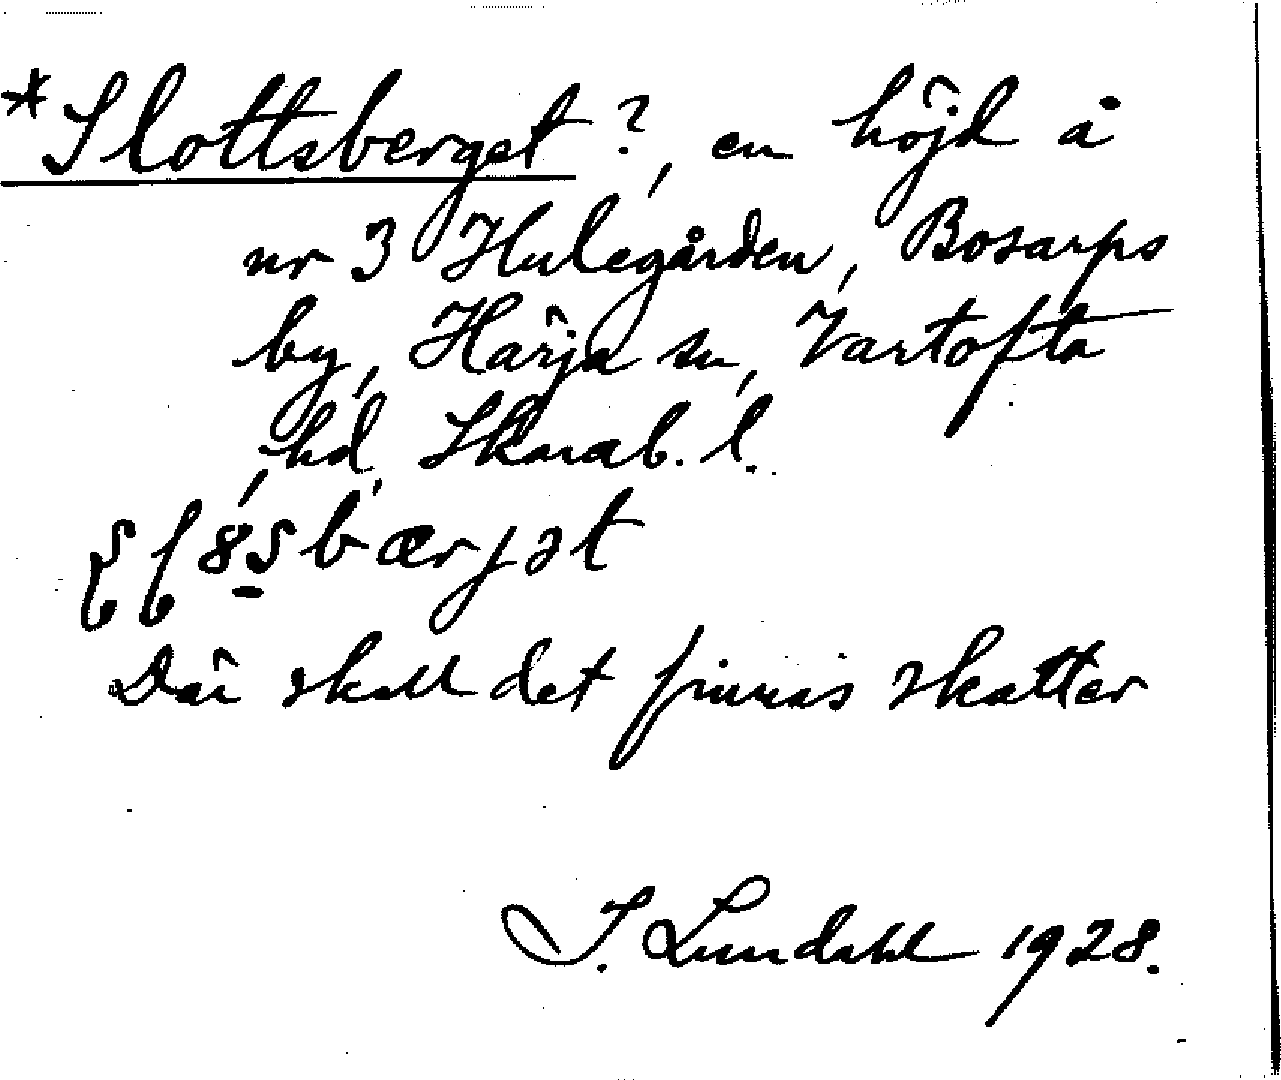 *Slottsberget?, en höjd å
nr 3 Hulegården, Bosarps
by, Härja sn, Vartofta
hd, Skarab. l.
bærgət
Där skall det finnas skatter
I. Lundahl 1928.